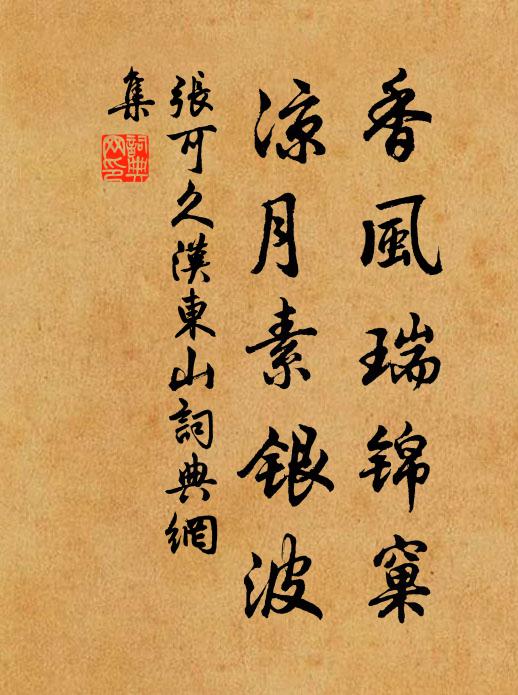 香風瑞锦窠
凉月素銀波
張可久漢東山詞典網
集
詞典
网印